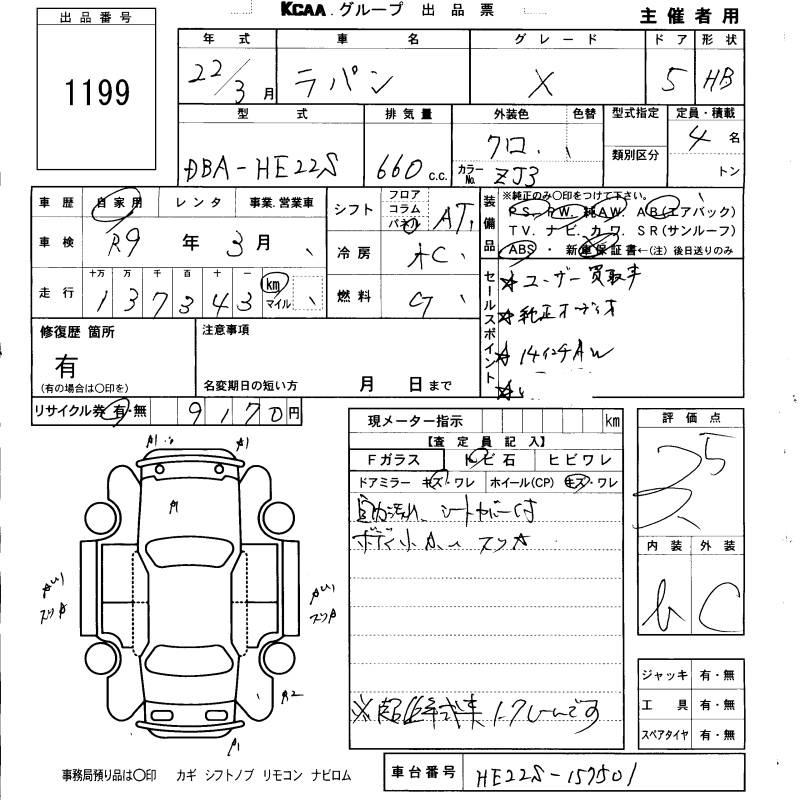 KCAA.グループ 出品票
主催者用
出品番号
1199
年式 車名 グレード ドア 形状
22/3月 ラパン X 5 HB
型式 排気量 外装色 色替 型式指定 定員・積載
DBA-HE22S 660 c.c. クロ、 4名
カラーNo. ZJ3 類別区分 トン
車歴 自家用 レンタ 事業.営業車
車検 R9年 3月
走行 十万 万 千 百 十 一
137343 km マイル
シフト フロア コラム パネル AT
冷房 AC
燃料 G
装備品
※純正のみ○印をつけて下さい。
PS. PW. 純AW. AB(エアバック)
TV. ナビ. カワ. SR(サンルーフ)
ABS ・ 新車保証書←(注)後日送りのみ
セールスポイント
☆ユーザー買取車
☆純正オーディオ
☆14インチAW
☆
修復歴 箇所
有
(有の場合は○印を)
注意事項
名変期日の短い方 月 日まで
リサイクル券 有・無 9170円
現メーター指示 km
【査定員記入】
Fガラス トビ石 ヒビワレ
ドアミラー キズ・ワレ ホイール(CP) キズ・ワレ
シートカバー付
ボディ小
※ 低年式車 1.クレームです
評価点
内装 外装
b C
A1 A1
A1
A2
A1
ジャッキ 有・無
工具 有・無
スペアタイヤ 有・無
事務局預り品は○印 カギ シフトノブ リモコン ナビロム
車台番号 HE22S-157501